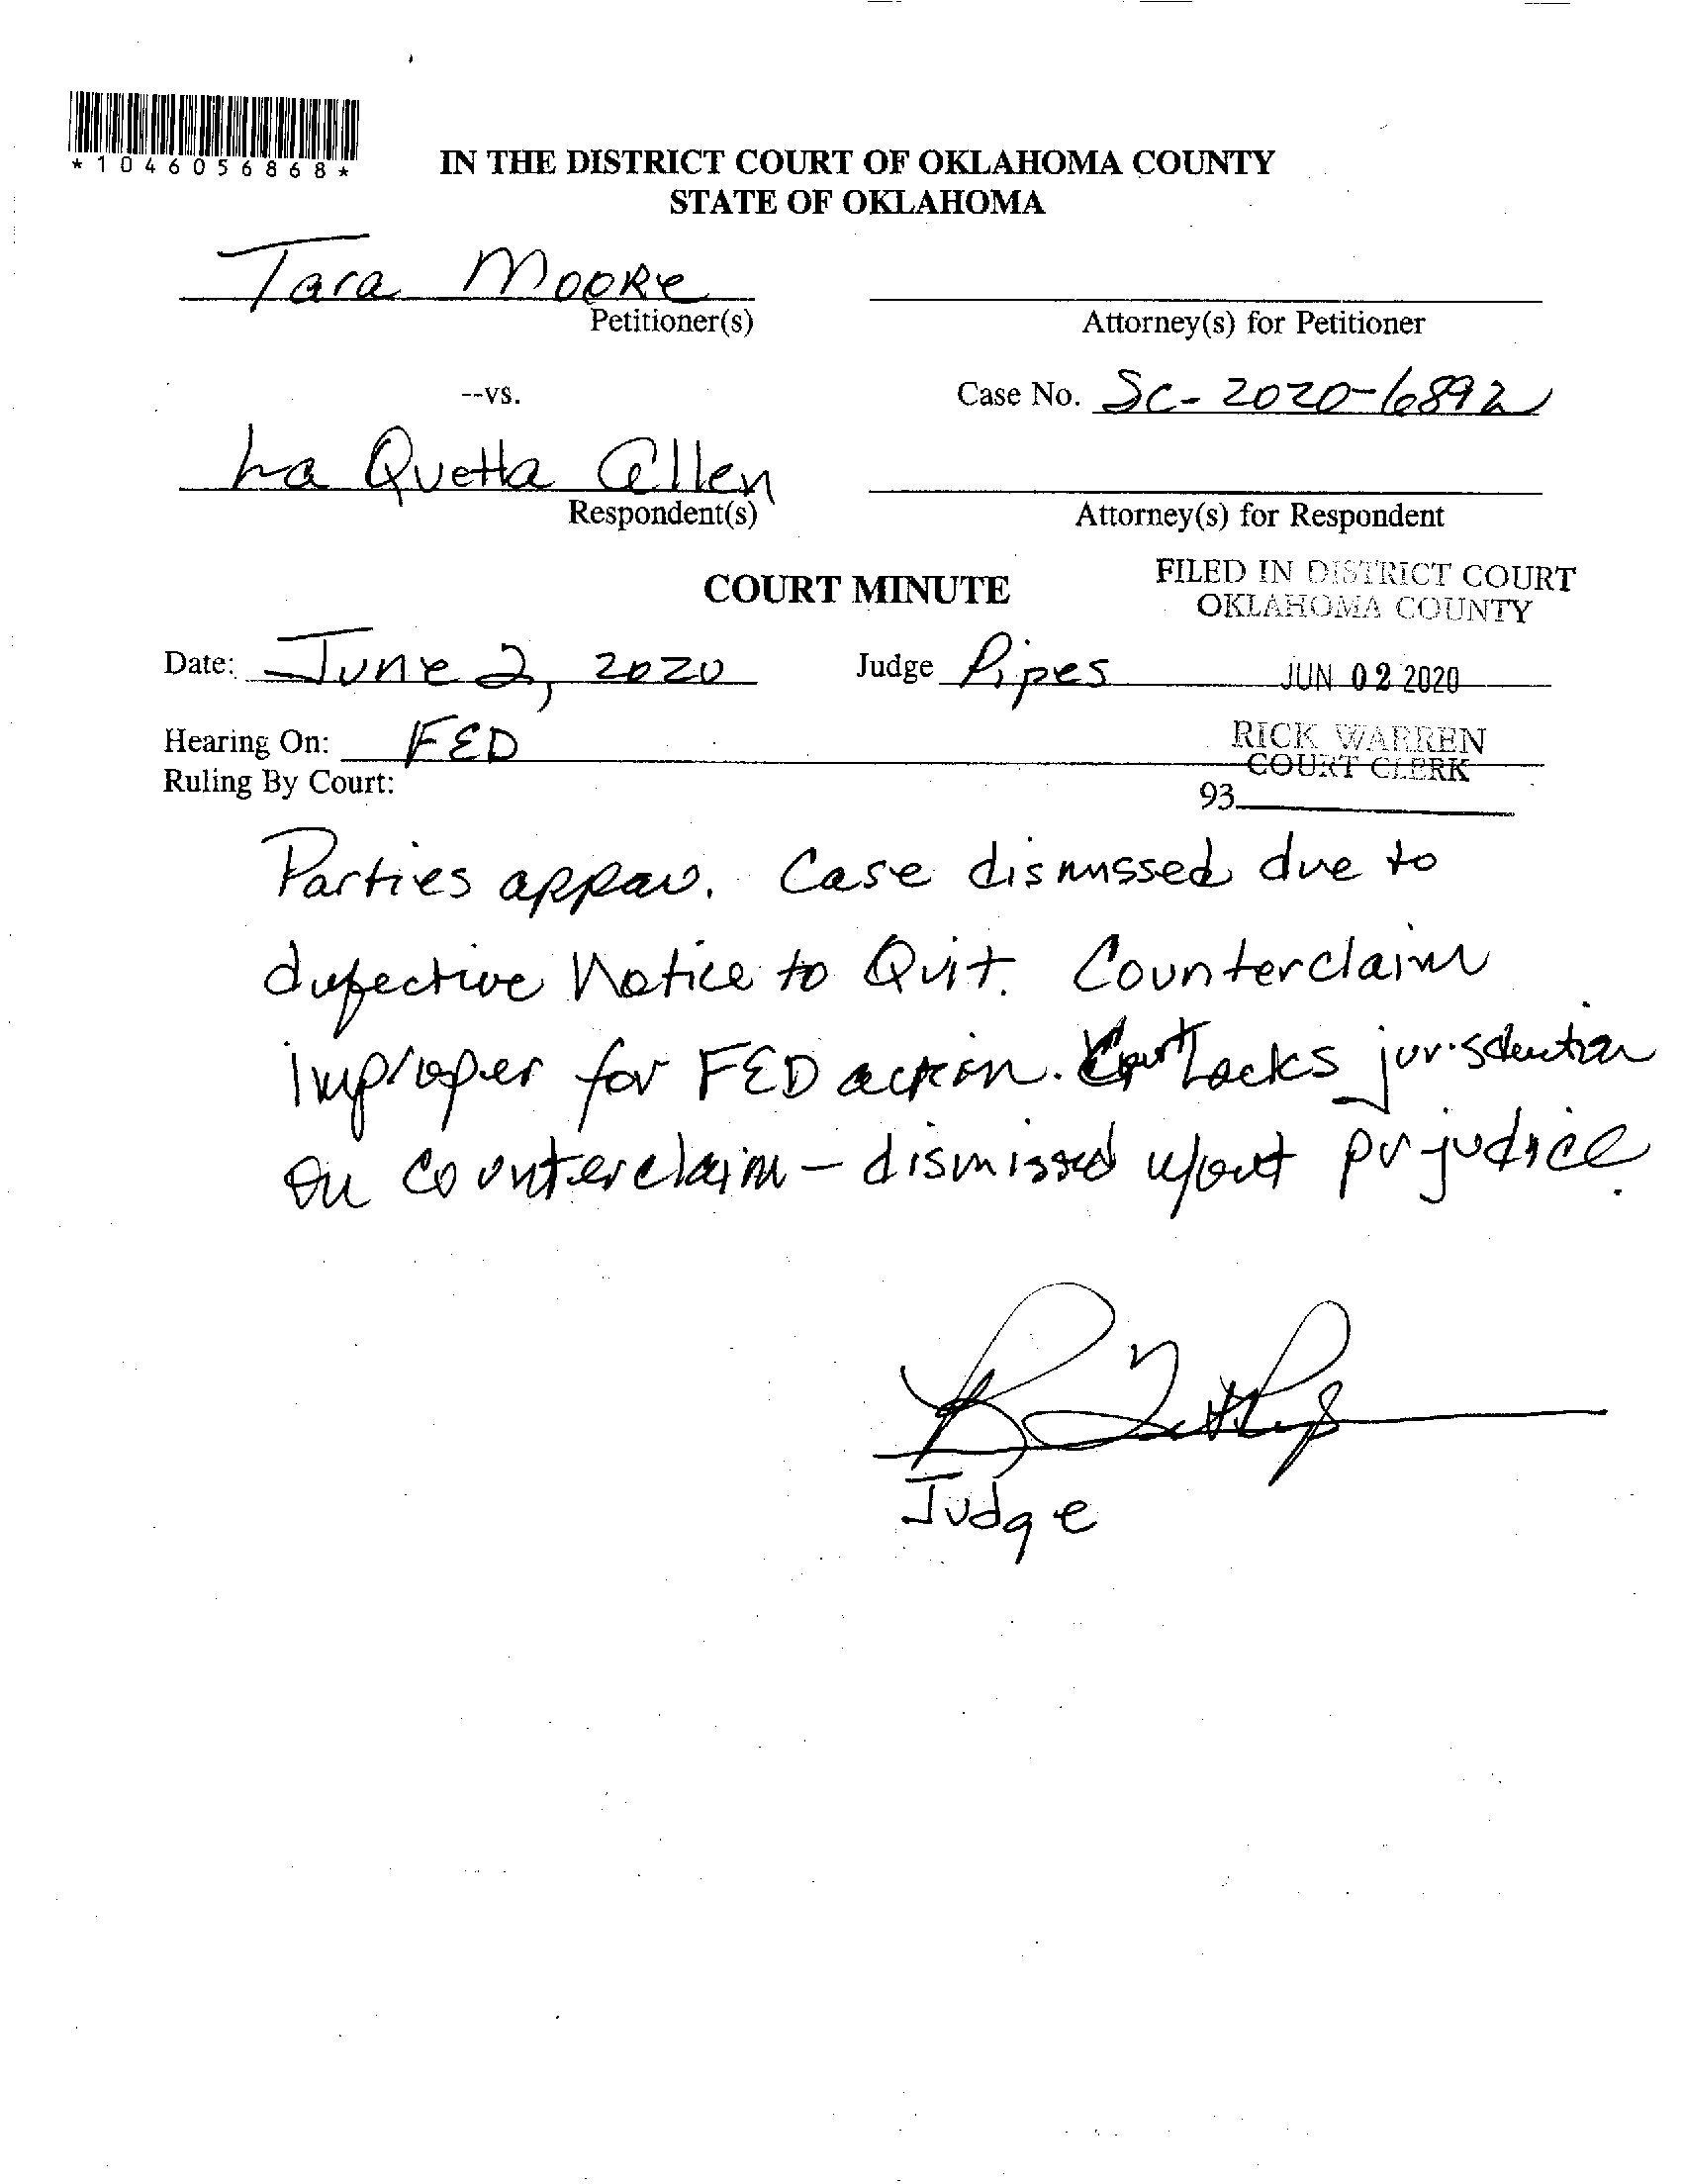 *1046056868*
IN THE DISTRICT COURT OF OKLAHOMA COUNTY
STATE OF OKLAHOMA
Tara Moore
Petitioner(s)
Attorney(s) for Petitioner
--vs.
Case No. SC-2020-6892
La Quetta Allen
Respondent(s)
Attorney(s) for Respondent
COURT MINUTE
FILED IN DISTRICT COURT
OKLAHOMA COUNTY
Date: June 2, 2020
Judge Pipes
JUN 02 2020
Hearing On: FED
RICK WARREN
COURT CLERK
Ruling By Court:
93
Parties appear. Case dismissed due to
defective Notice to Quit. Counterclaim
improper for FED action. Court lacks jurisdiction
on counterclaim - dismissed w/out prejudice.
Judge